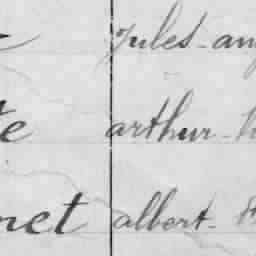 Jules - an
te arthur - h
net albert - H